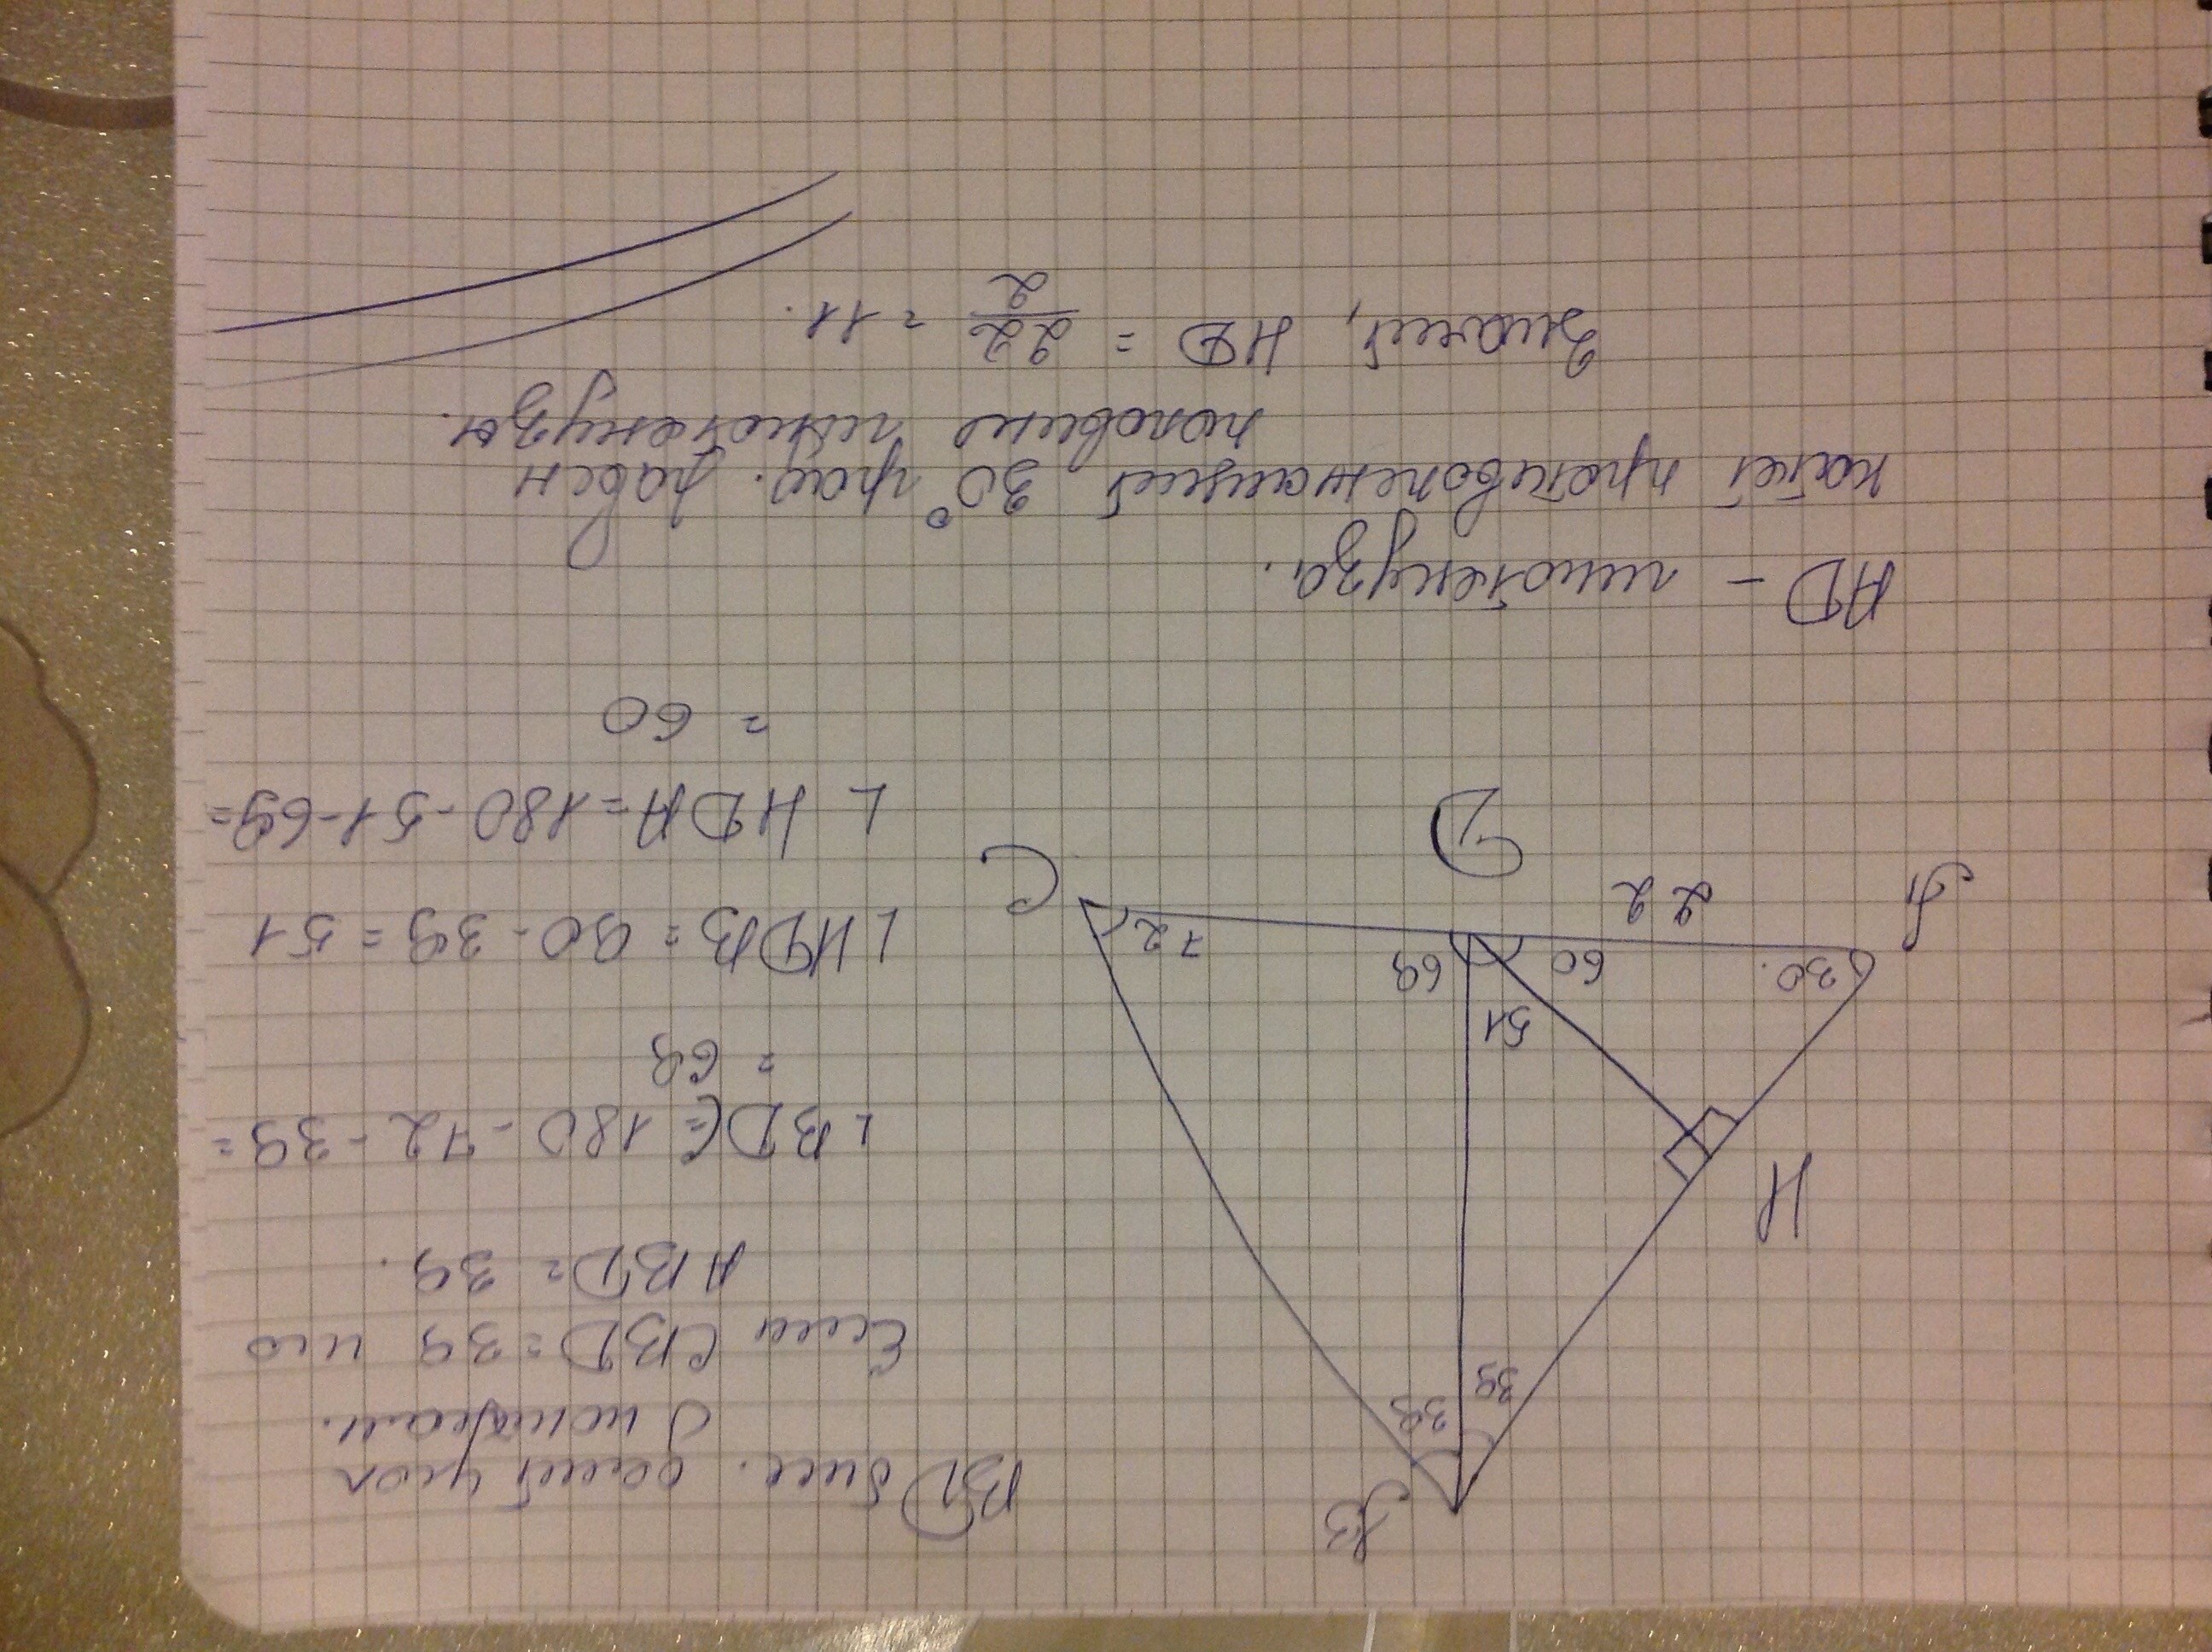 BD бисс. делит угол
пополам.
Если CBD = 39 то
ABD = 39.
∠BDC = 180 - 72 - 39 =
= 69
∠HDB = 90 - 39 = 51
∠HDA = 180 - 51 - 69 =
= 60
B
39
39
H
51
30.
60
69
72
A
22
D
C
AD - гипотенуза.
катет противолежащий 30° град. равен
половине гипотенузы.
Значит, HD = 22/2 = 11.